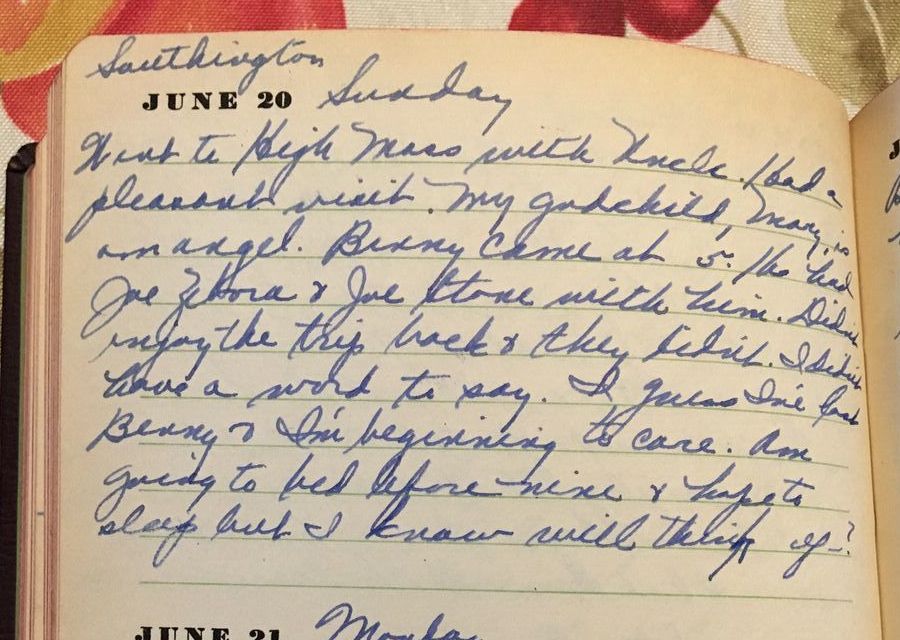 Southington
JUNE 20 Sunday
Went to High Mass with Uncle. Had a
pleasant visit. My godchild, Mary, is
an angel. Benny came at 5. He had
Joe & Joe Stone with him. Didn't
enjoy the trip back & they didn't. I didn't
have a word to say. I guess I've lost
Benny & I'm beginning to care. Am
going to bed before nine & hope to
sleep but I know will think of—?
JUNE 21 Monday